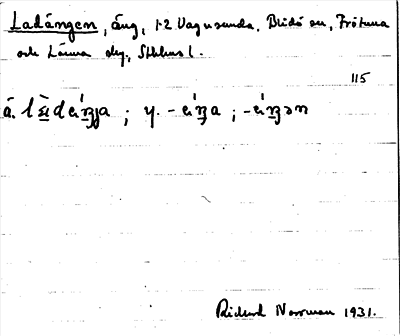 Ladängen, äng, 1-2 Vagnsunda, Blidö sn, Frötuna
och Länna slg, Sthlms l.
115
ä. làdeıŋa ; y. -eıŋa ; -eıŋən
Rickard Norrman 1931.